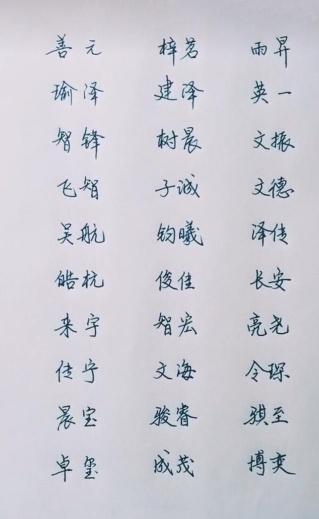 善元 梓茗 雨昇
瑜泽 建泽 英一
智锋 树晨 文振
飞智 子诚 文德
昊航 钧曦 泽传
皓杭 俊佳 长安
来宇 智宏 亮尧
佳宁 文海 令琛
晨宝 骏睿 骐至
卓玺 成茂 博奕